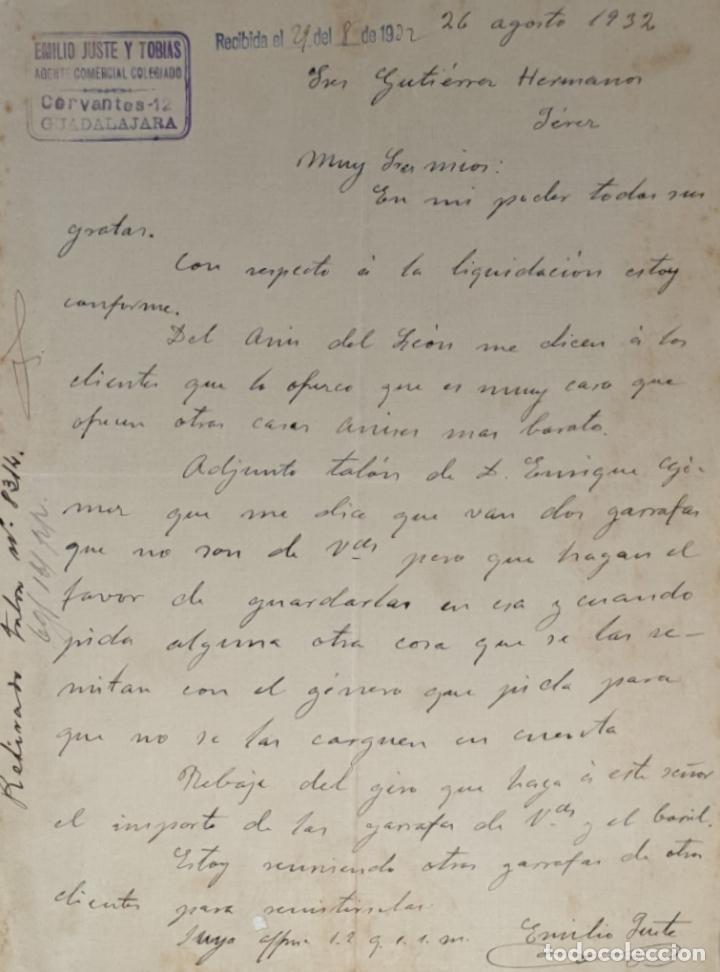 EMILIO JUSTE Y TOBIAS
AGENTE COMERCIAL COLEGIADO
Cervantes-12
GUADALAJARA
Recibida el 29 del 8 de 1932
26 agosto 1932
Sres Gutiérrez Hermanos
Jérez
Muy Sres mios:
En mi poder todas sus
gratas.
Con respecto á la liquidación estoy
conforme.
Del Anis del León me dicen á los
clientes que lo ofrezco que es muy caro que
ofrecen otras casas anises mas barato.
Adjunto talón de D. Enrique
que me dice que van dos garrafas
que no son de Vdes pero que hagan el
favor de guardarlas en esa y cuando
pida alguna otra cosa que se las re-
mitan con el género que pida para
que no se las carguen en cuenta
Rebaje del giro que haga á este señor
el importe de las garrafas de Vdes y el barril.
Estoy reuniendo otras garrafas de otros
clientes para remitirselas.
Suyo affmo s.s. q.e.s.m.
Emilio Juste
Retirado talon nº 8314.
todocoleccion